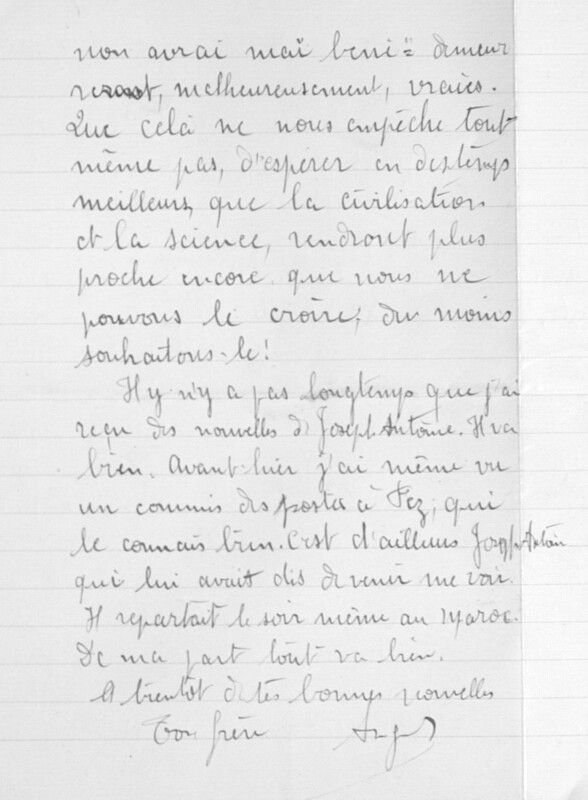 non avrai maï beni" demeur
reront, malheureusement, vraies.
Que celà ne nous empêche tout
même pas, d'espérer en des temps
meilleurs, que la civilisation
et la science, rendront plus
proche encore que nous ne
pouvons le croire; du moins
souhaitons-le!
Il y n'y a pas longtemps que j'ai
reçu des nouvelles de Joseph Antoine. Il va
bien. Avant-hier j'ai même vu
un commis des postes à Fez, qui
le connais bien. C'est d'ailleurs Joseph Antoine
qui lui avait dis de venir me voir.
Il repartait le soir même au Maroc.
De ma part tout va bien.
A bientot de tes bonnes nouvelles
Ton frère